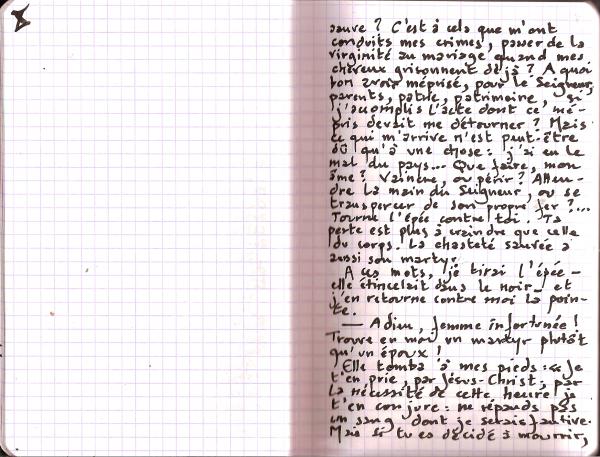 sauve ? C'est à cela que m'ont
conduits mes crimes, passer de la
virginité au mariage quand mes
cheveux grisonnent déjà ? A quoi
bon avoir méprisé, pour le Seigneur,
parents, patrie, patrimoine, si
j'accomplis l'acte dont ce mé-
pris devait me détourner ? Mais
ce qui m'arrive n'est peut-être
dû qu'à une chose : j'ai eu le
mal du pays... Que faire, mon
âme ? Vaincre, ou périr ? Atten-
dre la main du Seigneur, ou se
transpercer de son propre fer ?...
Tourne l'épée contre toi. Ta
perte est plus à craindre que celle
du corps. La chasteté sauvée a
aussi son martyr.
A ces mots, je tirai l'épée –
elle étincelait dans le noir – et
j'en retourne contre moi la poin-
te.
— Adieu, femme infortunée !
Trouve en moi un martyr plutôt
qu'un époux !
Elle tomba à mes pieds : « Je
t'en prie, par Jésus-Christ, par
la nécessité de cette heure, je
t'en conjure : ne répands pas
un sang dont je serais fautive.
Mais si tu es décidé à mourir,